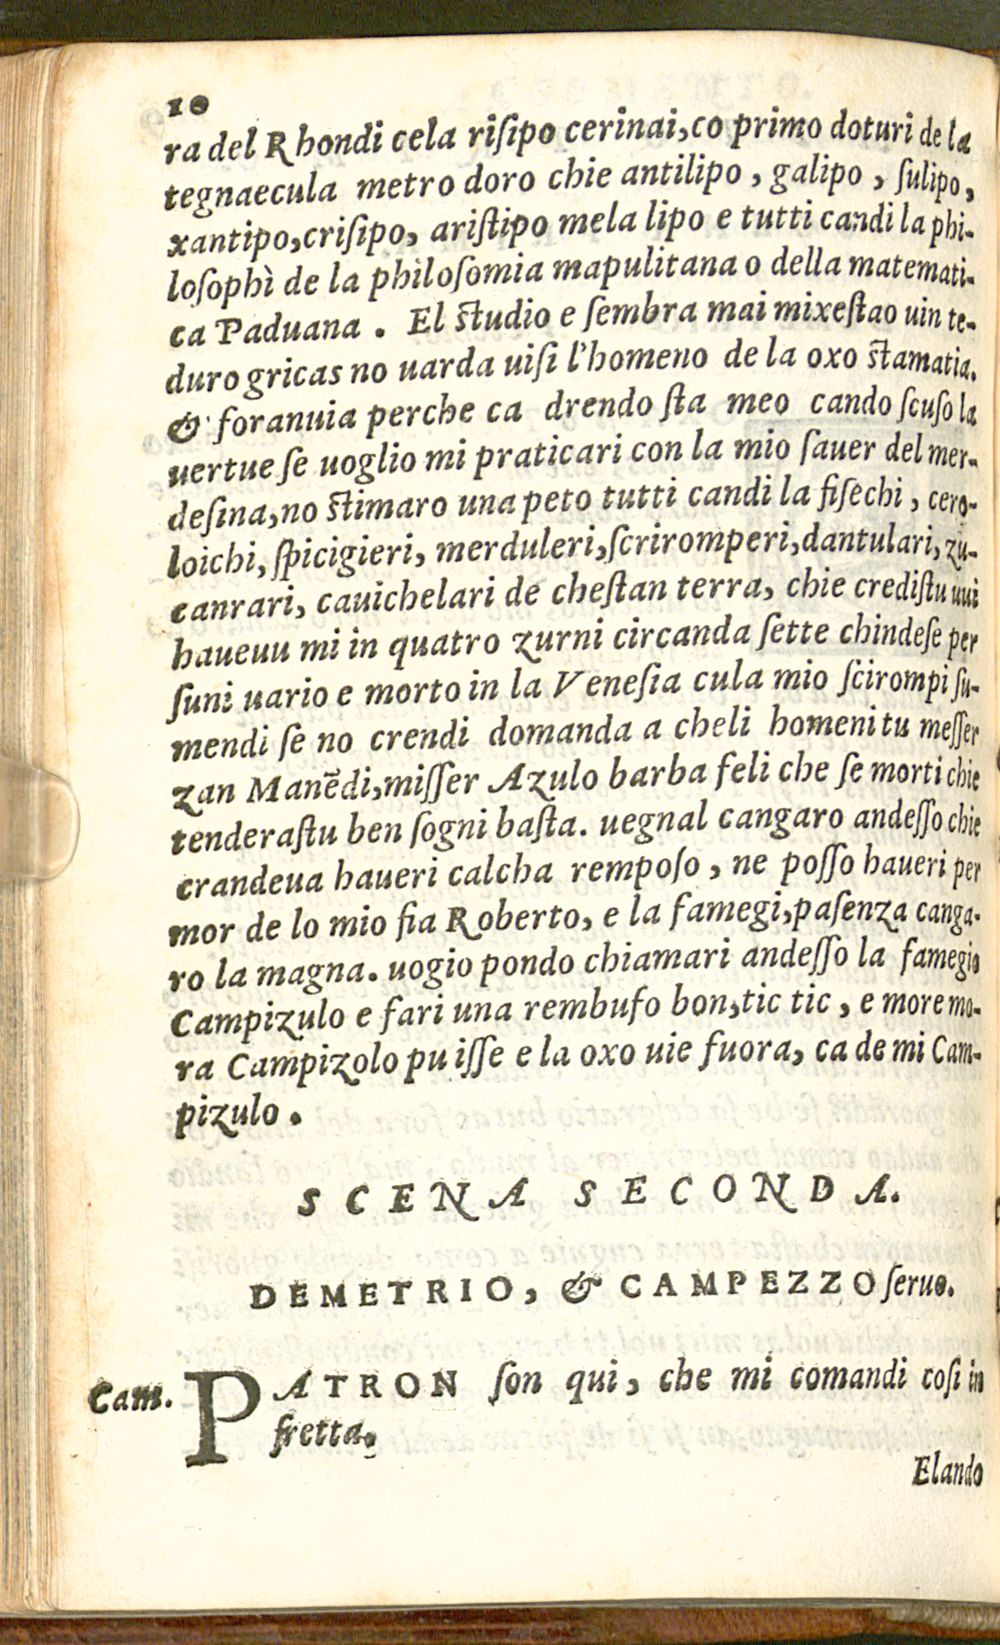 10
ra del Rhondi cela riſipo cerinai,co primo doturi de la
tegnaecula metro doro chie antilipo , galipo , ſulipo,
xantipo,criſipo, ariſtipo mela lipo e tutti candi la phi-
loſophì de la philoſomia mapulitana o della matemati-
ca Paduana . El ſtudio e ſembra mai mixeſtao uin te-
duro gricas no uarda uiſi l'homeno de la oxo ſtamatia.
& foranuia perche ca drendo ſta meo cando ſcuſo la
uertue ſe uoglio mi praticari con la mio ſauer del mer-
deſina,no ſtimaro una peto tutti candi la fiſechi , cero-
loichi, ſpicigieri, merduleri,ſcriromperi,dantulari, zu-
canrari, cauichelari de cheſtan terra, chie crediſtu uui
haueuu mi in quatro zurni circanda ſette chindeſe per
ſuni uario e morto in la Veneſia cula mio ſcirompi ſu-
mendi ſe no crendi domanda a cheli homeni tu meſſer
zan Manēdi,miſſer Azulo barba feli che ſe morti chie
tenderaſtu ben ſogni baſta. uegnal cangaro andeſſo chie
crandeua haueri calcha rempoſo , ne poſſo haueri per
mor de lo mio fia Roberto, e la famegi,paſenza canga-
ro la magna. uogio pondo chiamari andeſſo la famegio
Campizulo e fari una rembufo bon,tic tic , e more mo-
ra Campizolo pu iſſe e la oxo uie fuora, ca de mi Cam-
pizulo .
SCENA SECONDA.
DEMETRIO, & CAMPEZZO ſeruo.
Cam. PATRON ſon qui, che mi comandi coſi in
fretta.
Elando